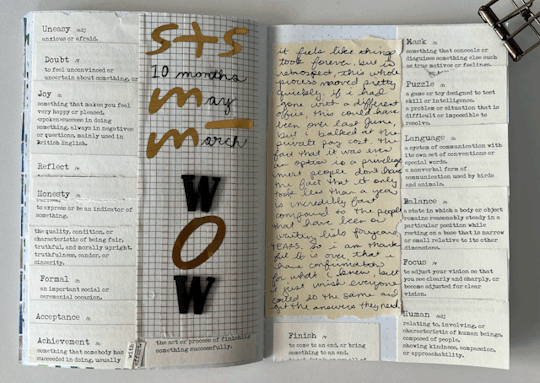 Uneasy adj
anxious or afraid.
Doubt
to feel unconvinced or
uncertain about something, or
Joy
something that makes you feel
very happy or pleased.
success in doing something,
always in negatives
or questions, mainly used in
British English.
Reflect
Honesty
to express or be an indicator of
something.
the quality, condition, or
characteristic of being fair,
truthful, and morally upright.
truthfulness, candor, or
sincerity.
Formal
an important social or
ceremonial occasion.
Acceptance
Achievement
something that somebody has
succeeded in doing, usually
with
S+S
10 months
May
March
WOW
the act or process of finishing
something successfully.
it feels like things
took forever but in
retrospect, this whole
process moved pretty
quickly. if i had
gone with a different
office, this could have
been one last
but i balked at the
private pay cost. the
fact that it was even
an option is a privilege
most people don't have
the fact that it only
took less than a year
is incredibly fast
compared to the people
that have been on
waiting lists for
YEARS. So i am thankful
it is over, that i
have confirmation
for what i knew, but
i just wish everyone
could do the same and
get the answers they need.
Finish
to come to an end, or bring
something to an end.
Mask
something that conceals or
disguises something else such
as true motives or feelings.
Puzzle
a game or toy designed to test
skill or intelligence.
a problem or situation that is
difficult or impossible to
resolve.
Language
a system of communication with
its own set of conventions or
special words.
a nonverbal form of
communication used by birds
and animals.
Balance
a state in which a body or object
remains reasonably steady in a
particular position while
resting on a base that is narrow
or small relative to its other
dimensions.
Focus
to adjust your vision so that you
see clearly and sharply, or
become adjusted for clear
vision.
Human
relating to, involving, or
characteristic of human beings.
composed of people.
showing kindness, compassion,
or approachability.